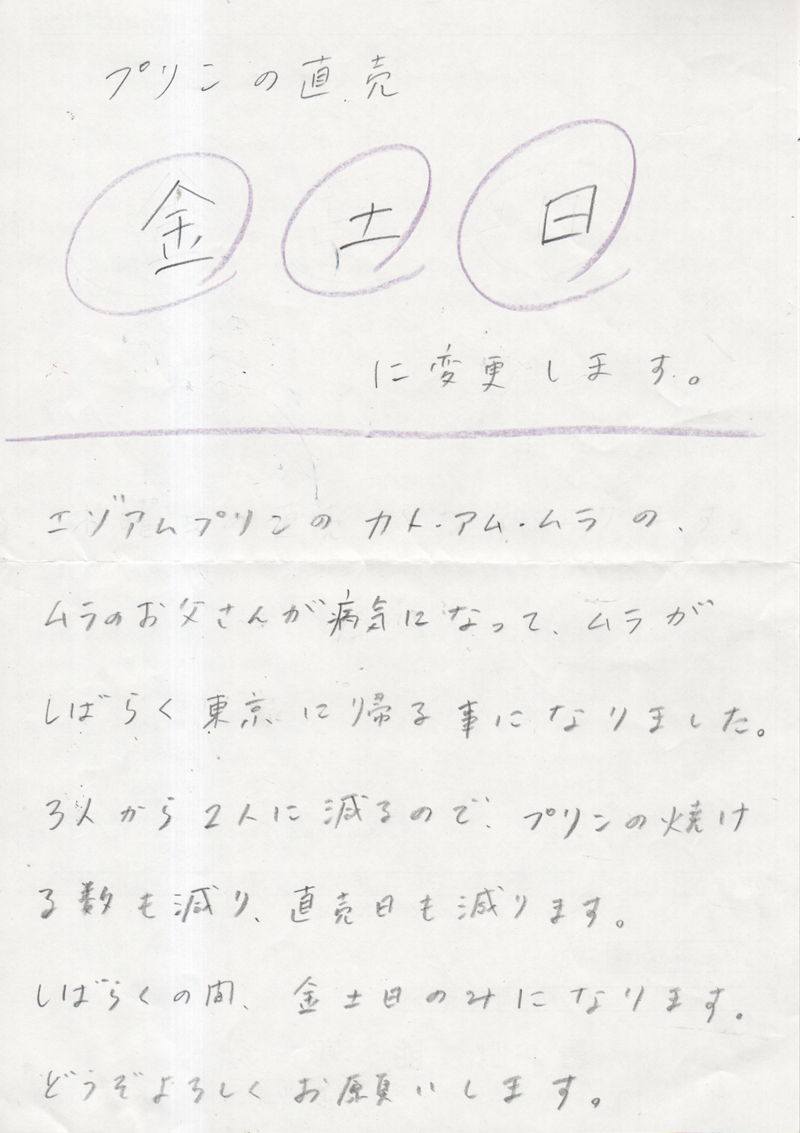 プリンの直売
金 土 日
に変更します。
エゾアムプリンの カト・アム・ムラ の、
ムラのお父さんが病気になって、ムラが
しばらく東京に帰る事になりました。
3人から2人に減るので、プリンの焼け
る数も減り、直売日も減ります。
しばらくの間、金土日のみになります。
どうぞよろしくお願いします。